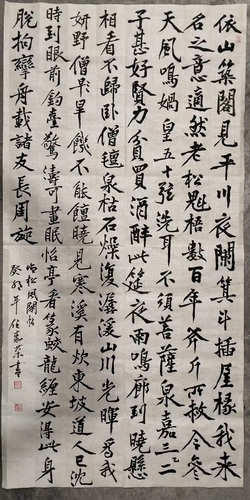 依山築閣見平川夜闌箕斗插屋椽我来
名之意適然老松魁梧數百年斧斤所赦今參
天風鳴媧皇五十弦洗耳不須菩薩泉嘉二三
子甚好賢力貧買酒醉此筵夜雨鳴廊到曉懸
相看不歸卧僧氊泉枯石燥復潺湲山川光暉為我
妍野僧旱饑不能饘曉見寒溪有炊東坡道人已沈
時到眼前釣臺驚濤可晝眠怡亭看篆蛟龍纏安得此身
脫拘攣舟載諸友長周旋
松風閣
癸卯年任榮書